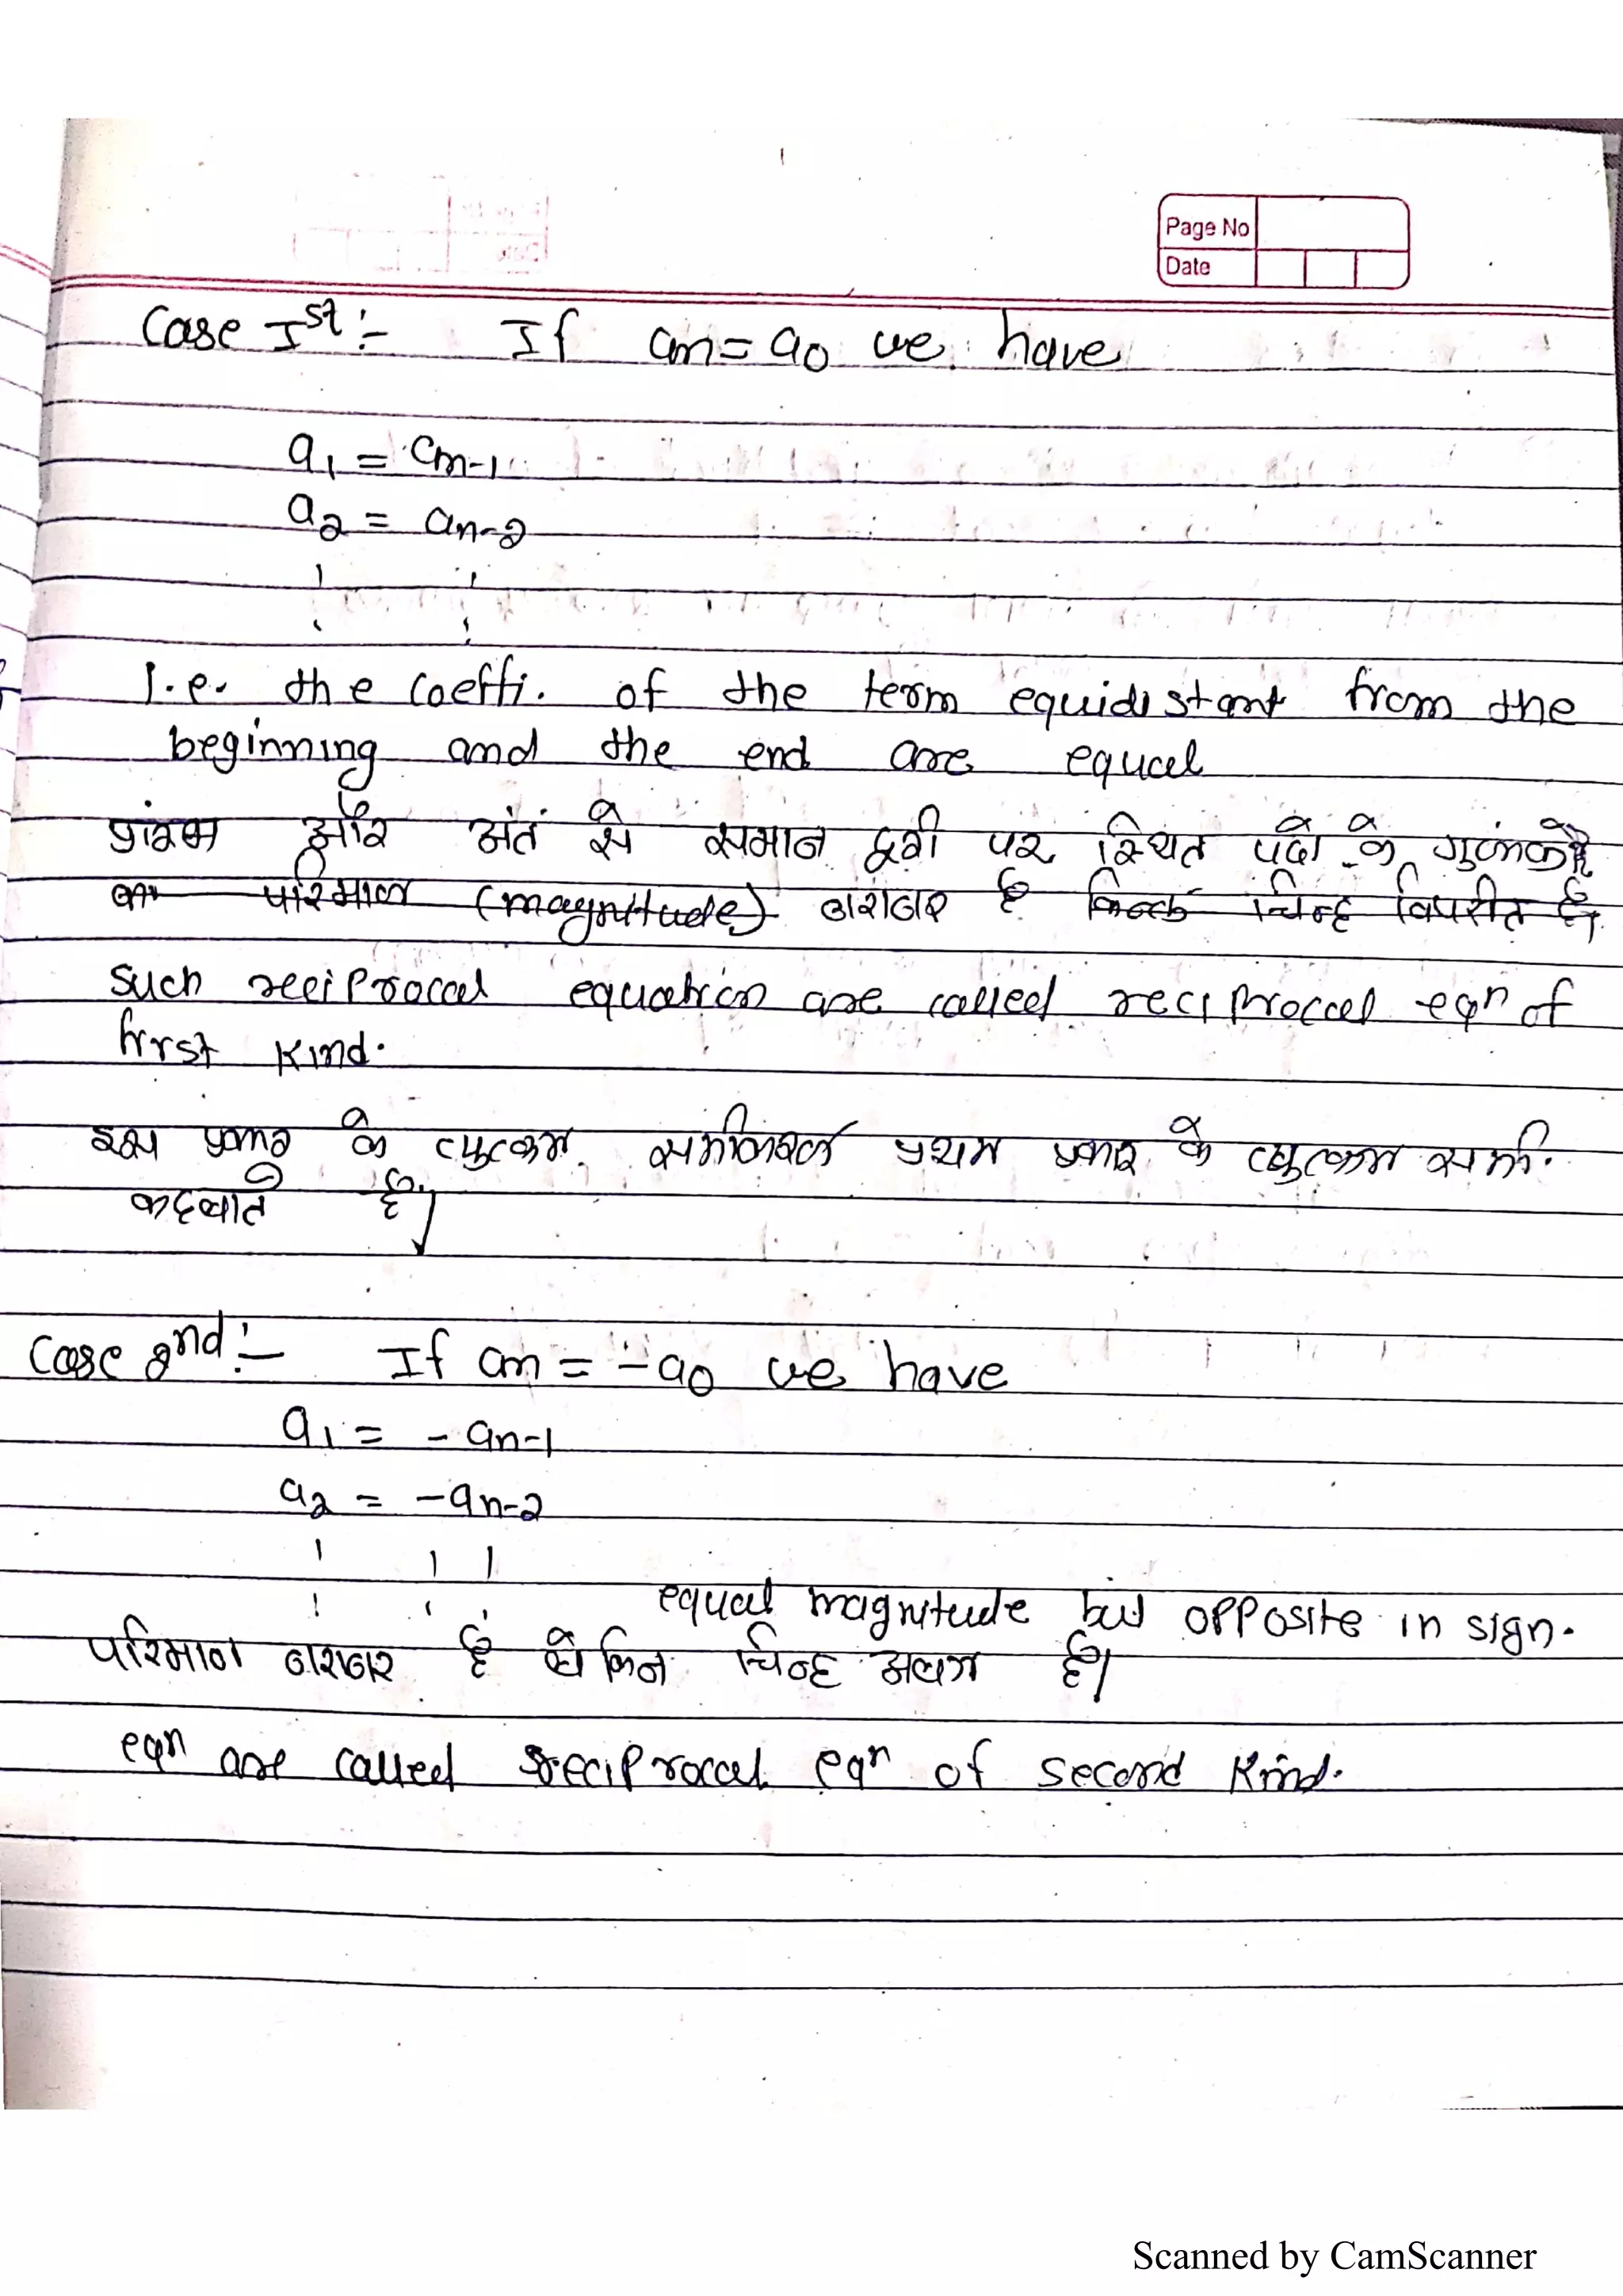 Page No
Date
Case Ist :- If an = a0 we have
a1 = an-1
a2 = an-2
I.e. the coeffi. of the term equidistant from the
beginning and the end are equal
प्रारंभ और अंतं से समान दूरी पर स्थित पदों के गुणांको
का परिमाण (magnitude) बराबर है किन्तु चिन्ह विपरीत है।
such reciprocal equation are called reciprocal eqn of
first kind.
इस प्रकार के व्युत्क्रम समीकरण प्रथम प्रकार के व्युत्क्रम समी.
कहलाते है।
Case 2nd :- If an = -a0 we have
a1 = - an-1
a2 = -an-2
equal magnitude but opposite in sign.
परिमाण बराबर है लेकिन चिन्ह अलग है।
eqn are called reciprocal eqn of second kind.
Scanned by CamScanner